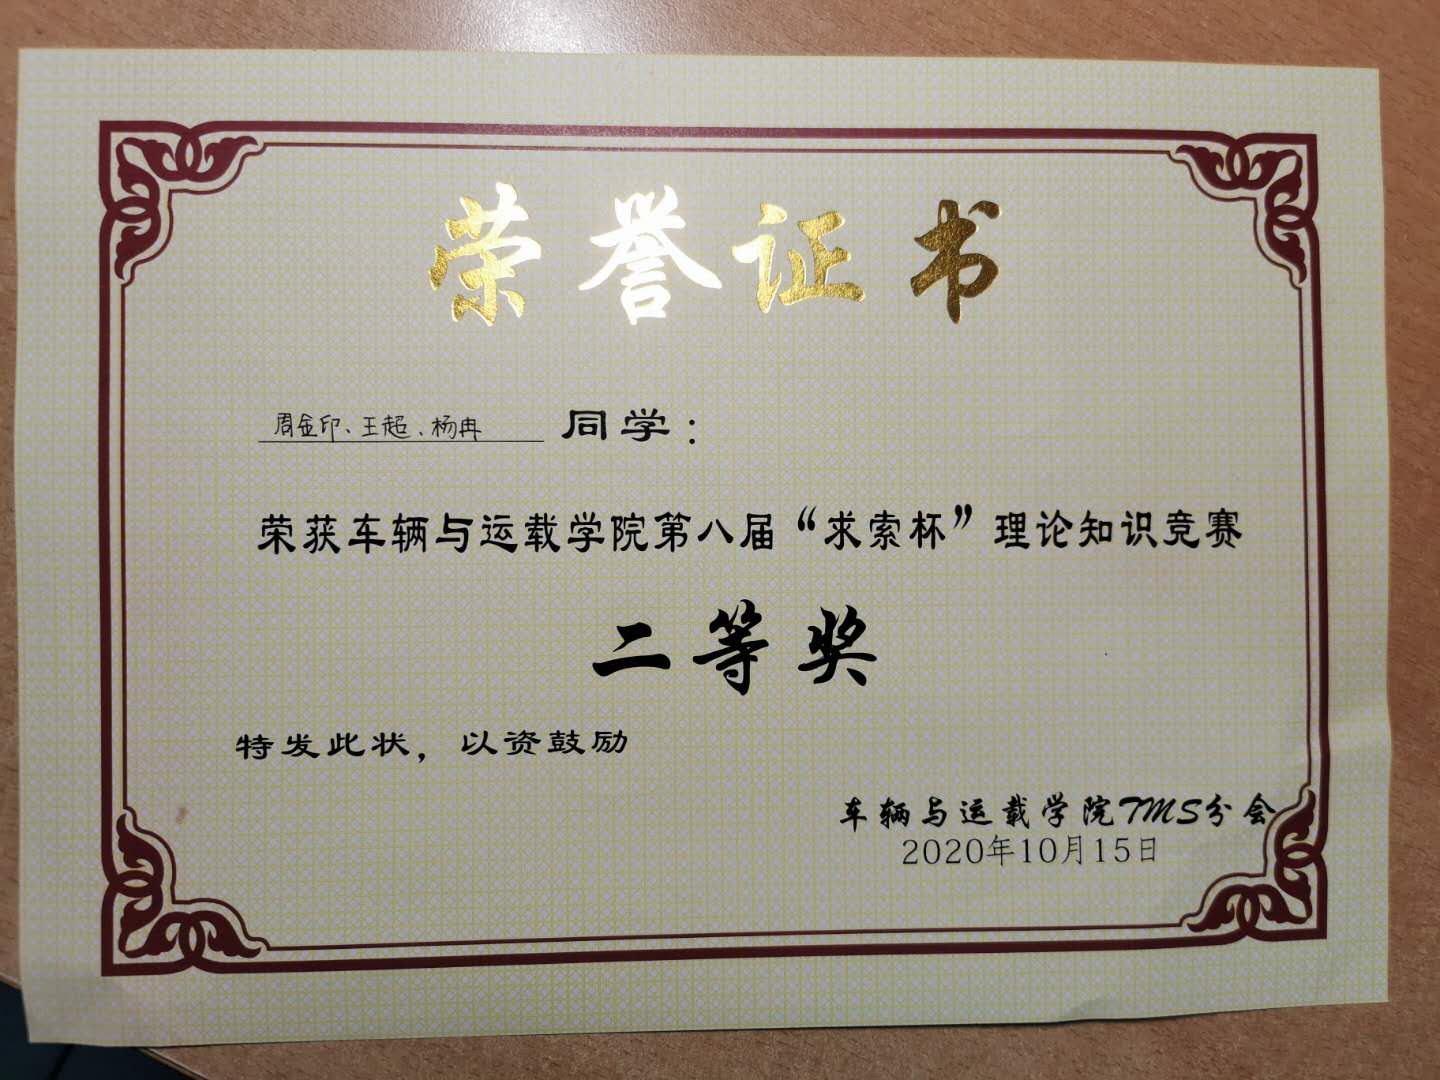 荣誉证书
周金印、王超、杨冉 同学：
荣获车辆与运载学院第八届“求索杯”理论知识竞赛
二等奖
特发此状，以资鼓励
车辆与运载学院TMS分会
2020年10月15日